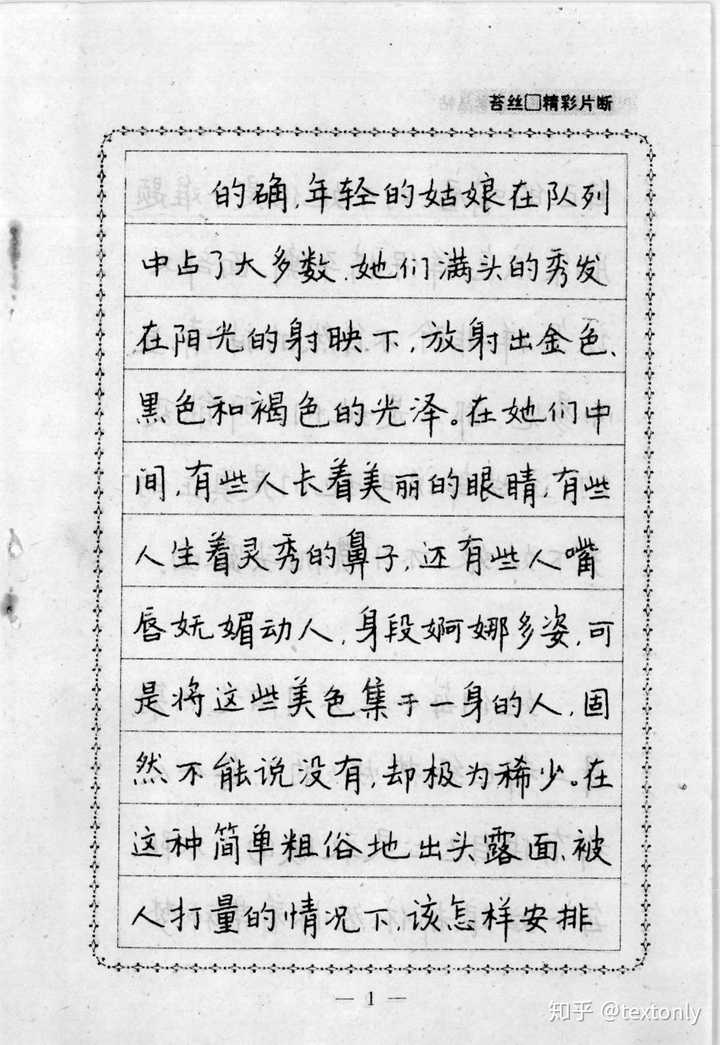 苔丝□精彩片断
的确,年轻的姑娘在队列
中占了大多数.她们满头的秀发
在阳光的射映下,放射出金色、
黑色和褐色的光泽。在她们中
间,有些人长着美丽的眼睛,有些
人生着灵秀的鼻子,还有些人嘴
唇妩媚动人,身段婀娜多姿,可
是将这些美色集于一身的人,固
然不能说没有,却极为稀少。在
这种简单粗俗地出头露面、被
人打量的情况下,该怎样安排
— 1 —
知乎 @textonly